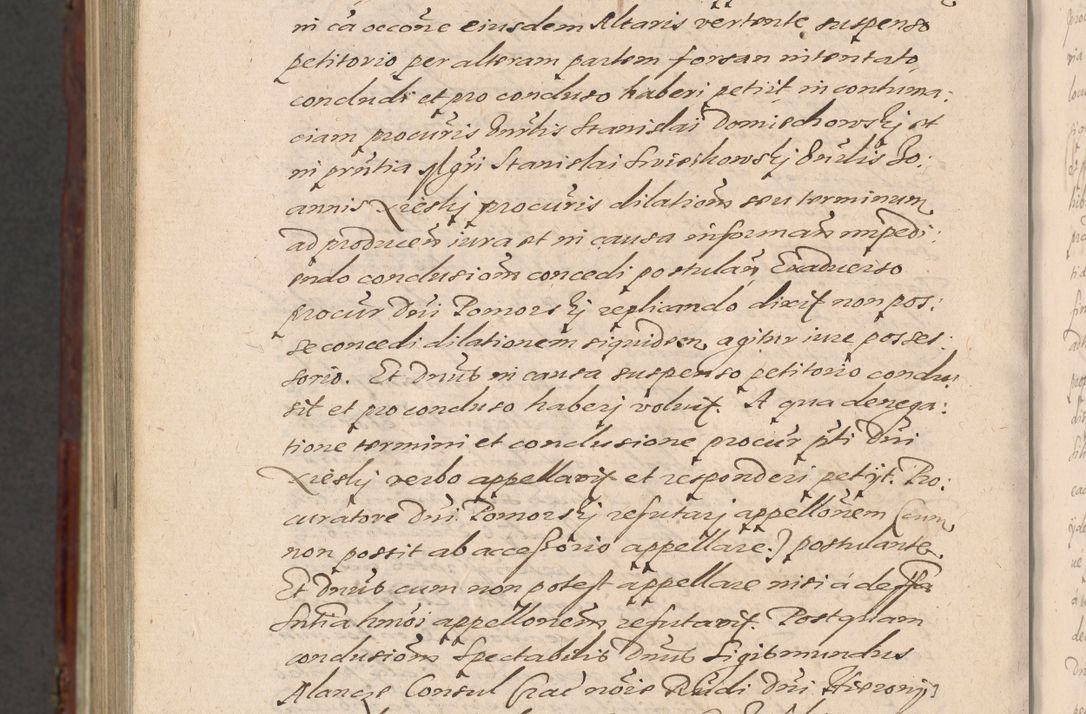 in cã occõne eiusdem Altaris vertente, suspenso
petitorio per alteram partem forsan intentato
concludi et pro concluso haberi petiit in contuma:
ciam procuris Gnrlis Stanislai Domiechowskj et
in pñtia Mgri Stanislai Swieskowskj Gnrlis Jo:
annis Xieskj procuris dilationẽ seu terminum
ad producen̄ iura et in causa informan̄ impedi:
endo conclusionẽ concedi postulan̄ Exaduerso
procur Dni Pomorskj replicando dixit non pos:
se concedi dilationem siquidem agitur iure posses:
sorio. Et Dnus in causa suspenso petitorio conclu:
sit et pro concluso haberj voluit. A qua denega:
tione termini et conclusione procur pti Dni
Xieskj verbo appellavit et responderi petijt. Pro:
curatore Dni Pomorskj refutarj appellonem (cum
non possit ab accessorio appellare) postulante.
Et Dnus cum non potest appellare nisi à deffa
Sntia hmoi appellonem refutavit. Postquam
conclusionẽ Spectabilis Dnus Sigismundus
Alancze Consul Crac noie Rndi Dni Hieronij